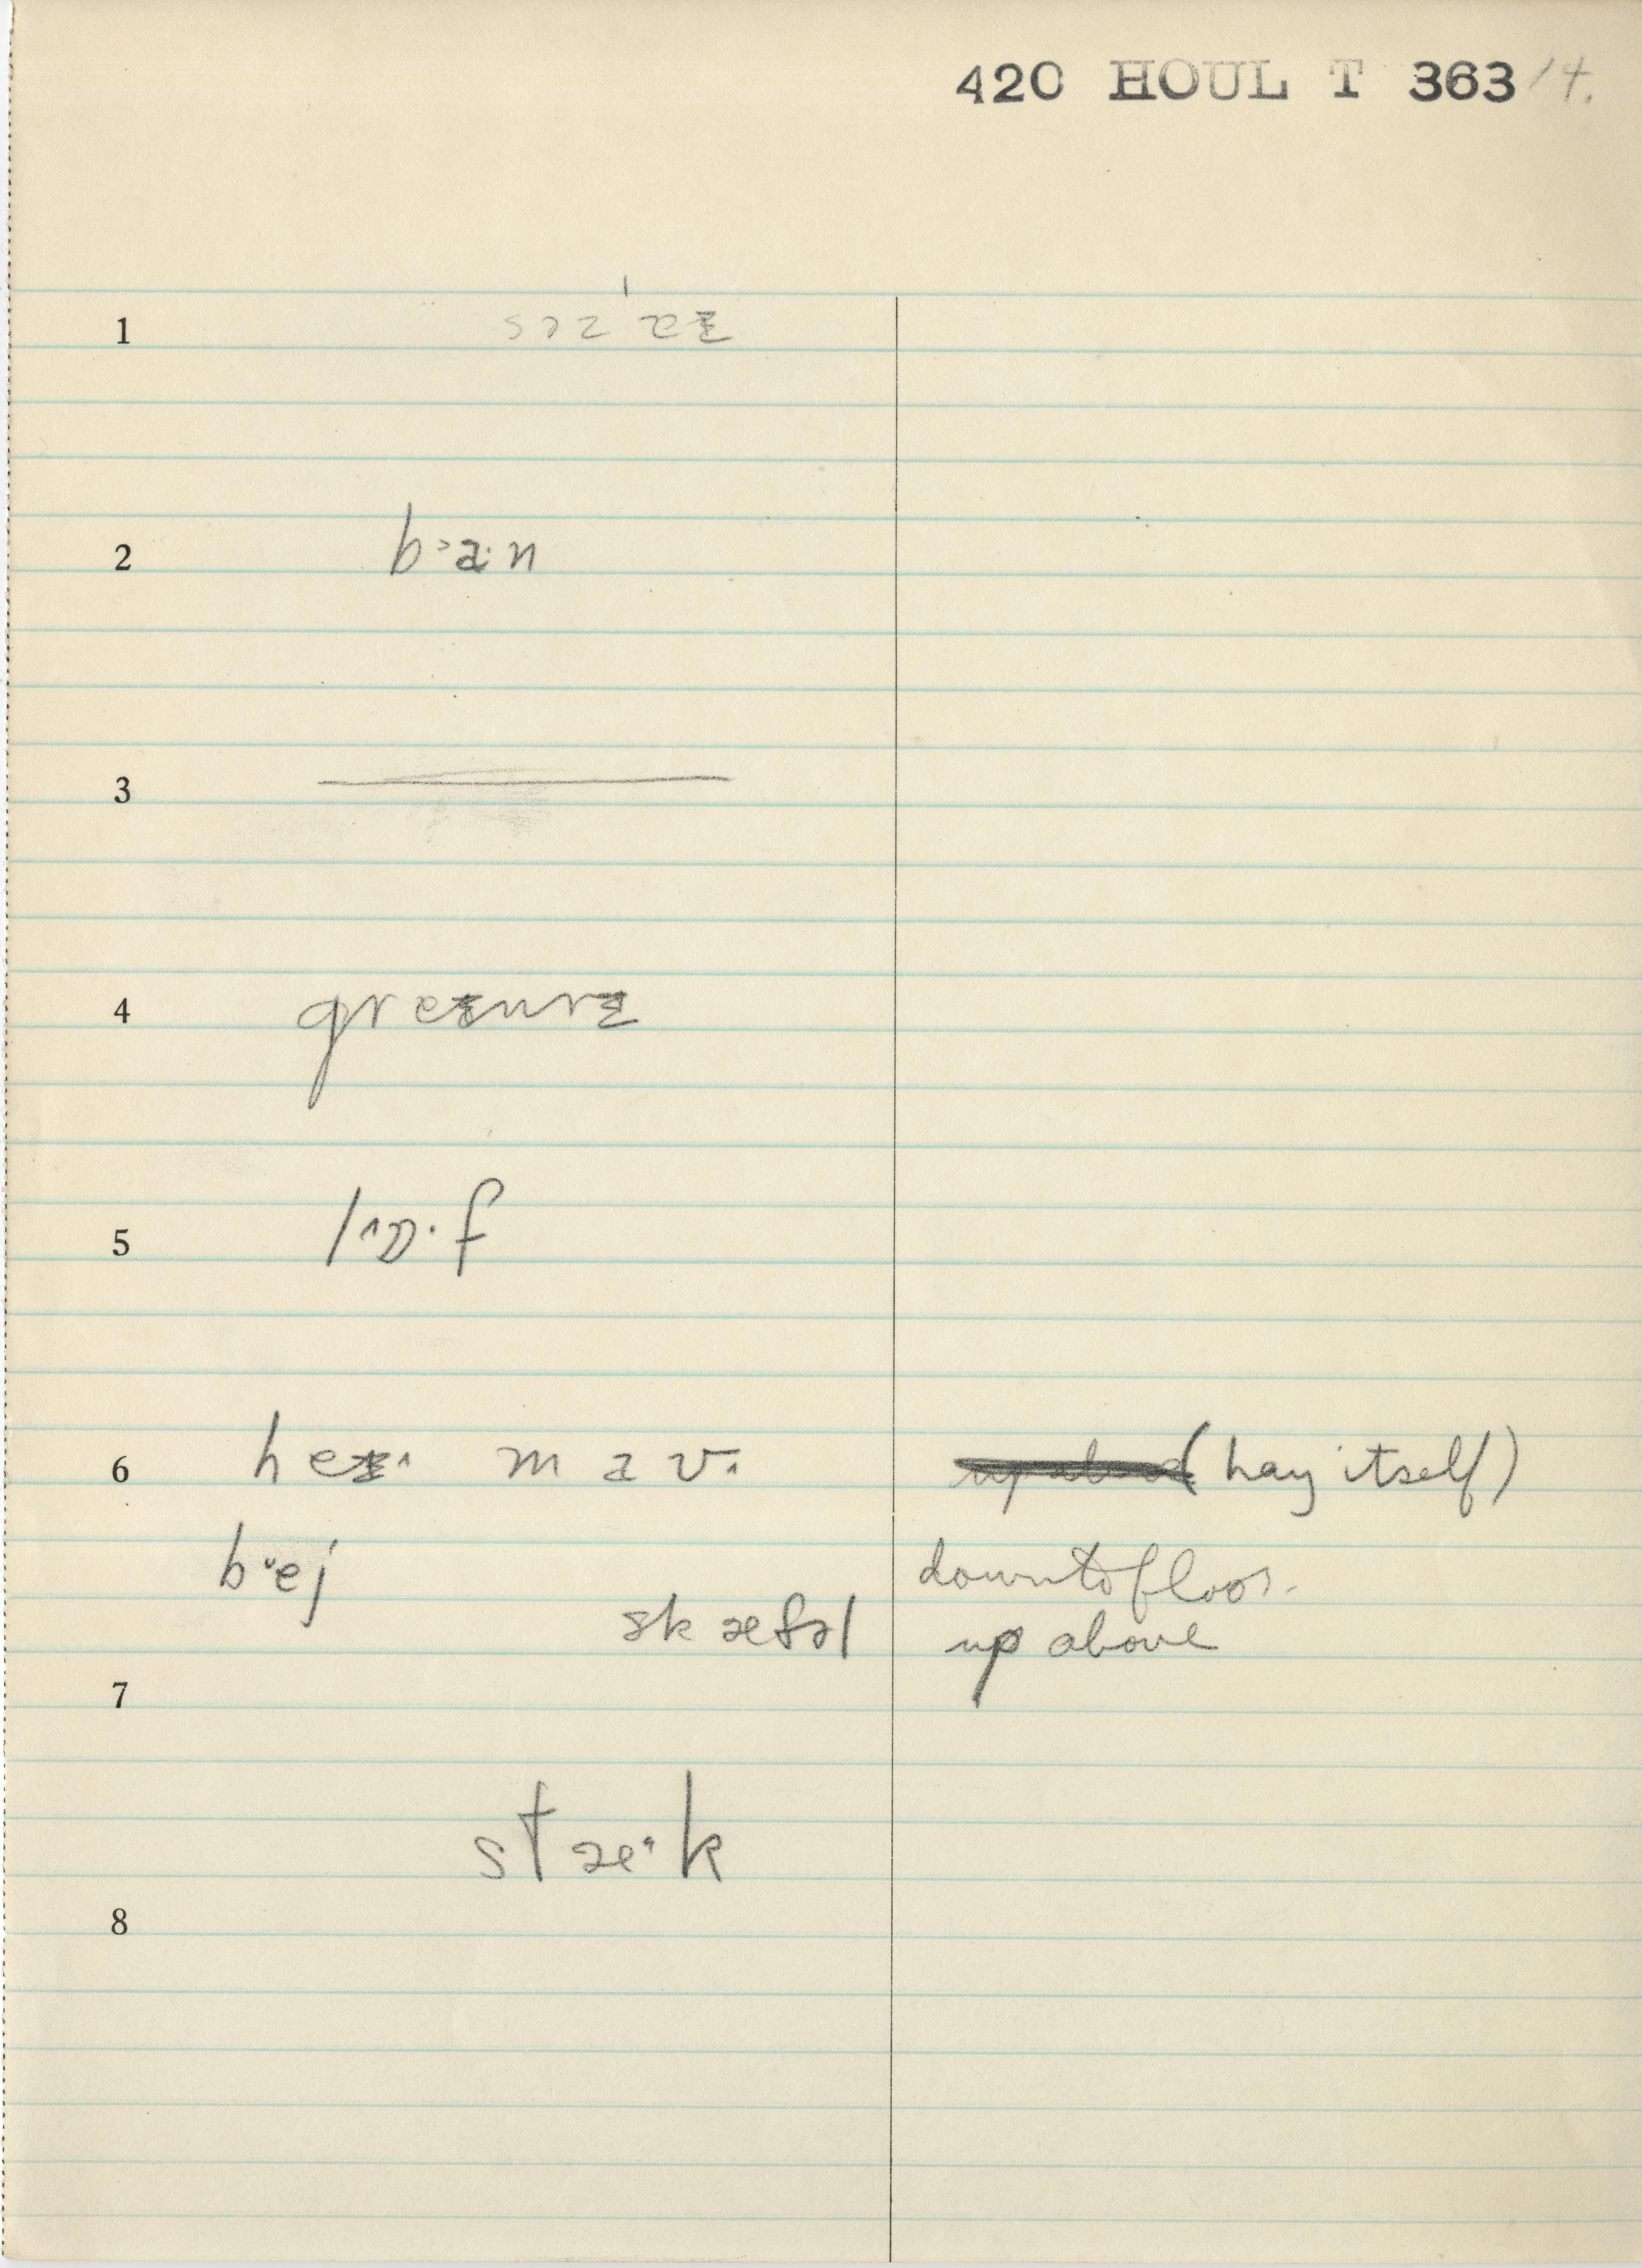 420 HOUL T 363/4.
1
2 b˃a·n
3
4 greɨnrɨ
5 l˄ɒ·f
6 heɨ·˄ m a v·
(hay itself)
b˅ej
down to floor.
skæfəl
up above
7
stæ·˄k
8